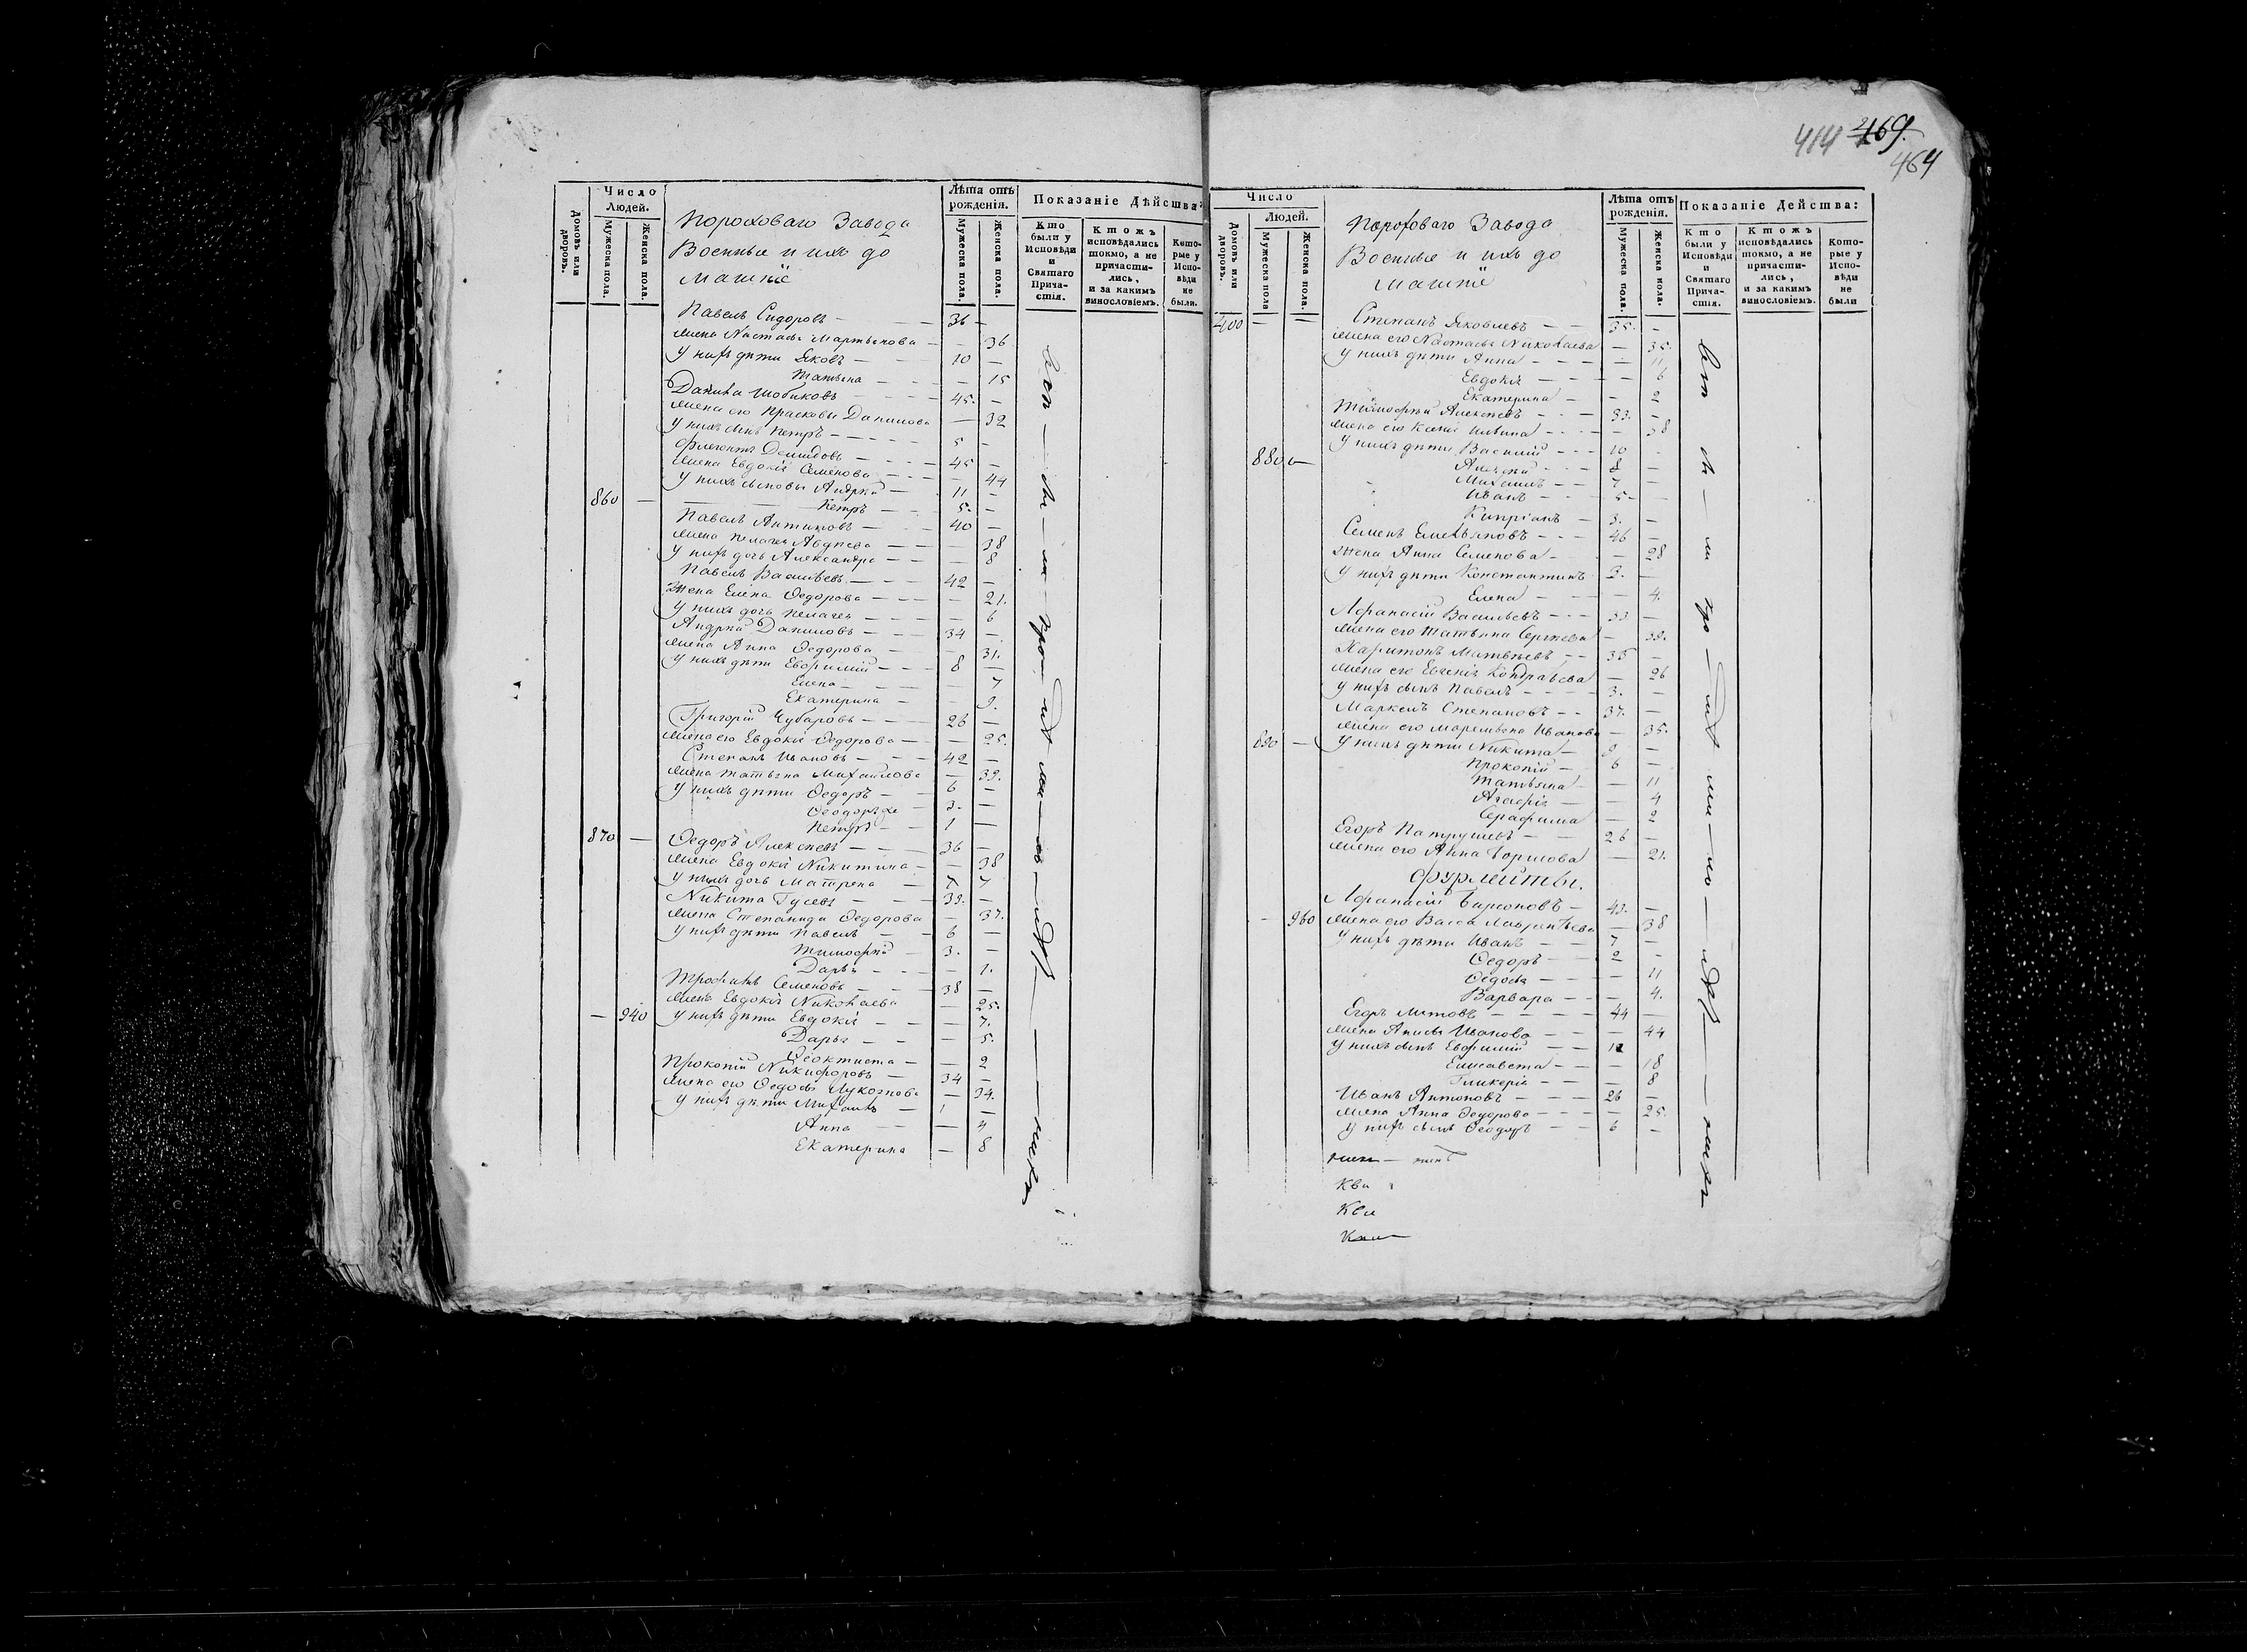 414 469.
464
Число Людей.
Домовъ или дворовъ.
Мужеска пола.
Женска пола.
Пороховаго Завода
Военные и ихъ до
машніе
Лѣта отъ рожденія.
Мужеска пола.
Женска пола.
Показаніе Дѣйства:
Кто были у Исповѣди и Святаго Причастія.
Ктожъ исповѣдались токмо, а не причастились, и за какимъ винословіемъ.
Которые у Исповѣди не были.
Павелъ Сидоровъ — 36 —
жена Настасья Мартынова — 36
у нихъ дѣти Яковъ — 10 —
Татьяна — 15
Данила — 45. —
жена его Прасковья Данилова — 32
у нихъ сынъ Петръ — 5 —
Демидовъ — 45 —
жена Евдокія Семенова — 44
у нихъ сыновья Андрей — 11 —
860 — Петръ — 5. —
Павелъ Антиповъ — 40 —
жена Пелагея Авдѣева — 38
у нихъ дочь Александра — 8
Павелъ Васильевъ — 42 —
жена Елена Ѳедорова — 21.
у нихъ дочь Пелагея — 6
Андрей Даниловъ — 34 —
жена Анна Ѳедорова — 31.
у нихъ дѣти Евфимій — 8 —
Елена — 7
Екатерина — 9.
Григорій Чубаровъ — 26 —
жена его Евдокія Ѳедорова — 25.
Степанъ Ивановъ — 42 —
жена Татьяна Михайлова — 39.
у нихъ дѣти Ѳедоръ — 6 —
3. —
Петръ — 1 —
870 — Ѳедоръ Алексѣевъ — 36 —
жена Евдокія Никитина — 38
у нихъ дочь Матрена — 7
Никита Гусевъ — 39. —
жена Степанида Ѳедорова — 37.
у нихъ дѣти Павелъ — 6 —
Тимофей — 3. —
Дарья — 1.
Трофимъ Семеновъ — 38 —
жена Евдокія Николаева — 25.
— 940 у нихъ дѣти Евдокія — 7.
Дарья — 5.
Ѳеоктиста — 2
Прокопій Никифоровъ — 34 —
жена его Ѳедосья — 34.
у нихъ дѣти Михаилъ — 1 —
Анна — 4
Екатерина — 8
Число Людей.
Домовъ или дворовъ.
Мужеска пола
Женска пола.
Пороховаго Завода
Военные и ихъ до
машніе
Лѣта отъ рожденія.
Мужеска пола.
Женска пола.
Показаніе Действа:
Кто были у Исповѣди и Святаго Причастія.
Ктожъ исповѣдались токмо, а не причастились, и за какимъ винословіемъ.
Которые у Исповѣди не были
400 — Степанъ Яковлевъ — 35. —
жена его Настасья Николаева — 35.
у нихъ дѣти Анна — 11
Евдокія — 6
Екатерина — 2
Тимофей Алексѣевъ — 33. —
жена его Ксенія — 38
880 — у нихъ дѣти Василій — 10
Алексѣй — 8 —
Михаилъ — 7 —
Иванъ — 5 —
Кипріанъ — 3. —
Семенъ Емельяновъ — 46 —
жена Анна Семенова — 28
у нихъ дѣти Константинъ 3. —
Елена — 4.
Афанасій Васильевъ — 33 —
жена его Татьяна Сергѣева — 39.
Харитонъ Матвѣевъ — 35 —
жена его Евгенія Кондратьева — 26
у нихъ сынъ Павелъ — 3. —
Маркелъ Степановъ — 37. —
жена его Маремьяна Иванова — 35.
890 — у нихъ дѣти Никита — 9 —
Прокопій — 6 —
Татьяна — 11
Агафія — 4
Серафима — 2
Егоръ Патрушевъ — 26 —
жена его Анна Борисова — 21.
Фурлейты.
Афанасій — 43. —
— 960 жена его Васса Лаврентьева — 38
у нихъ дѣти Иванъ — 7 —
Ѳедоръ — 2 —
Ѳедосья — 11
Варвара — 4.
Егоръ — 44 —
жена Анисья Иванова — 44
у нихъ сынъ Евфимій — 12
Елисавета — 18
Гликерія — 8
Иванъ Антоновъ — 26 —
жена Анна Ѳедорова — 25.
у нихъ сынъ Ѳеодоръ — 6 —